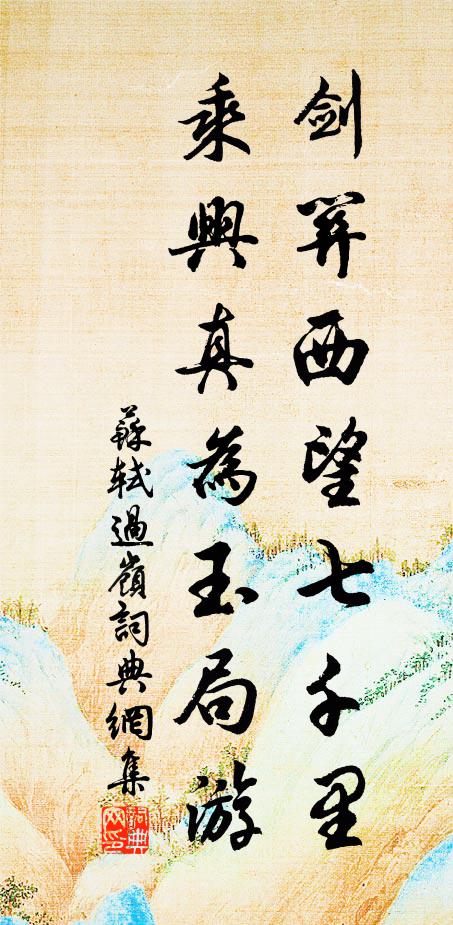 劍關西望七千里
乘興真為玉局游
蘇軾過嶺詞典網集
詞典网印